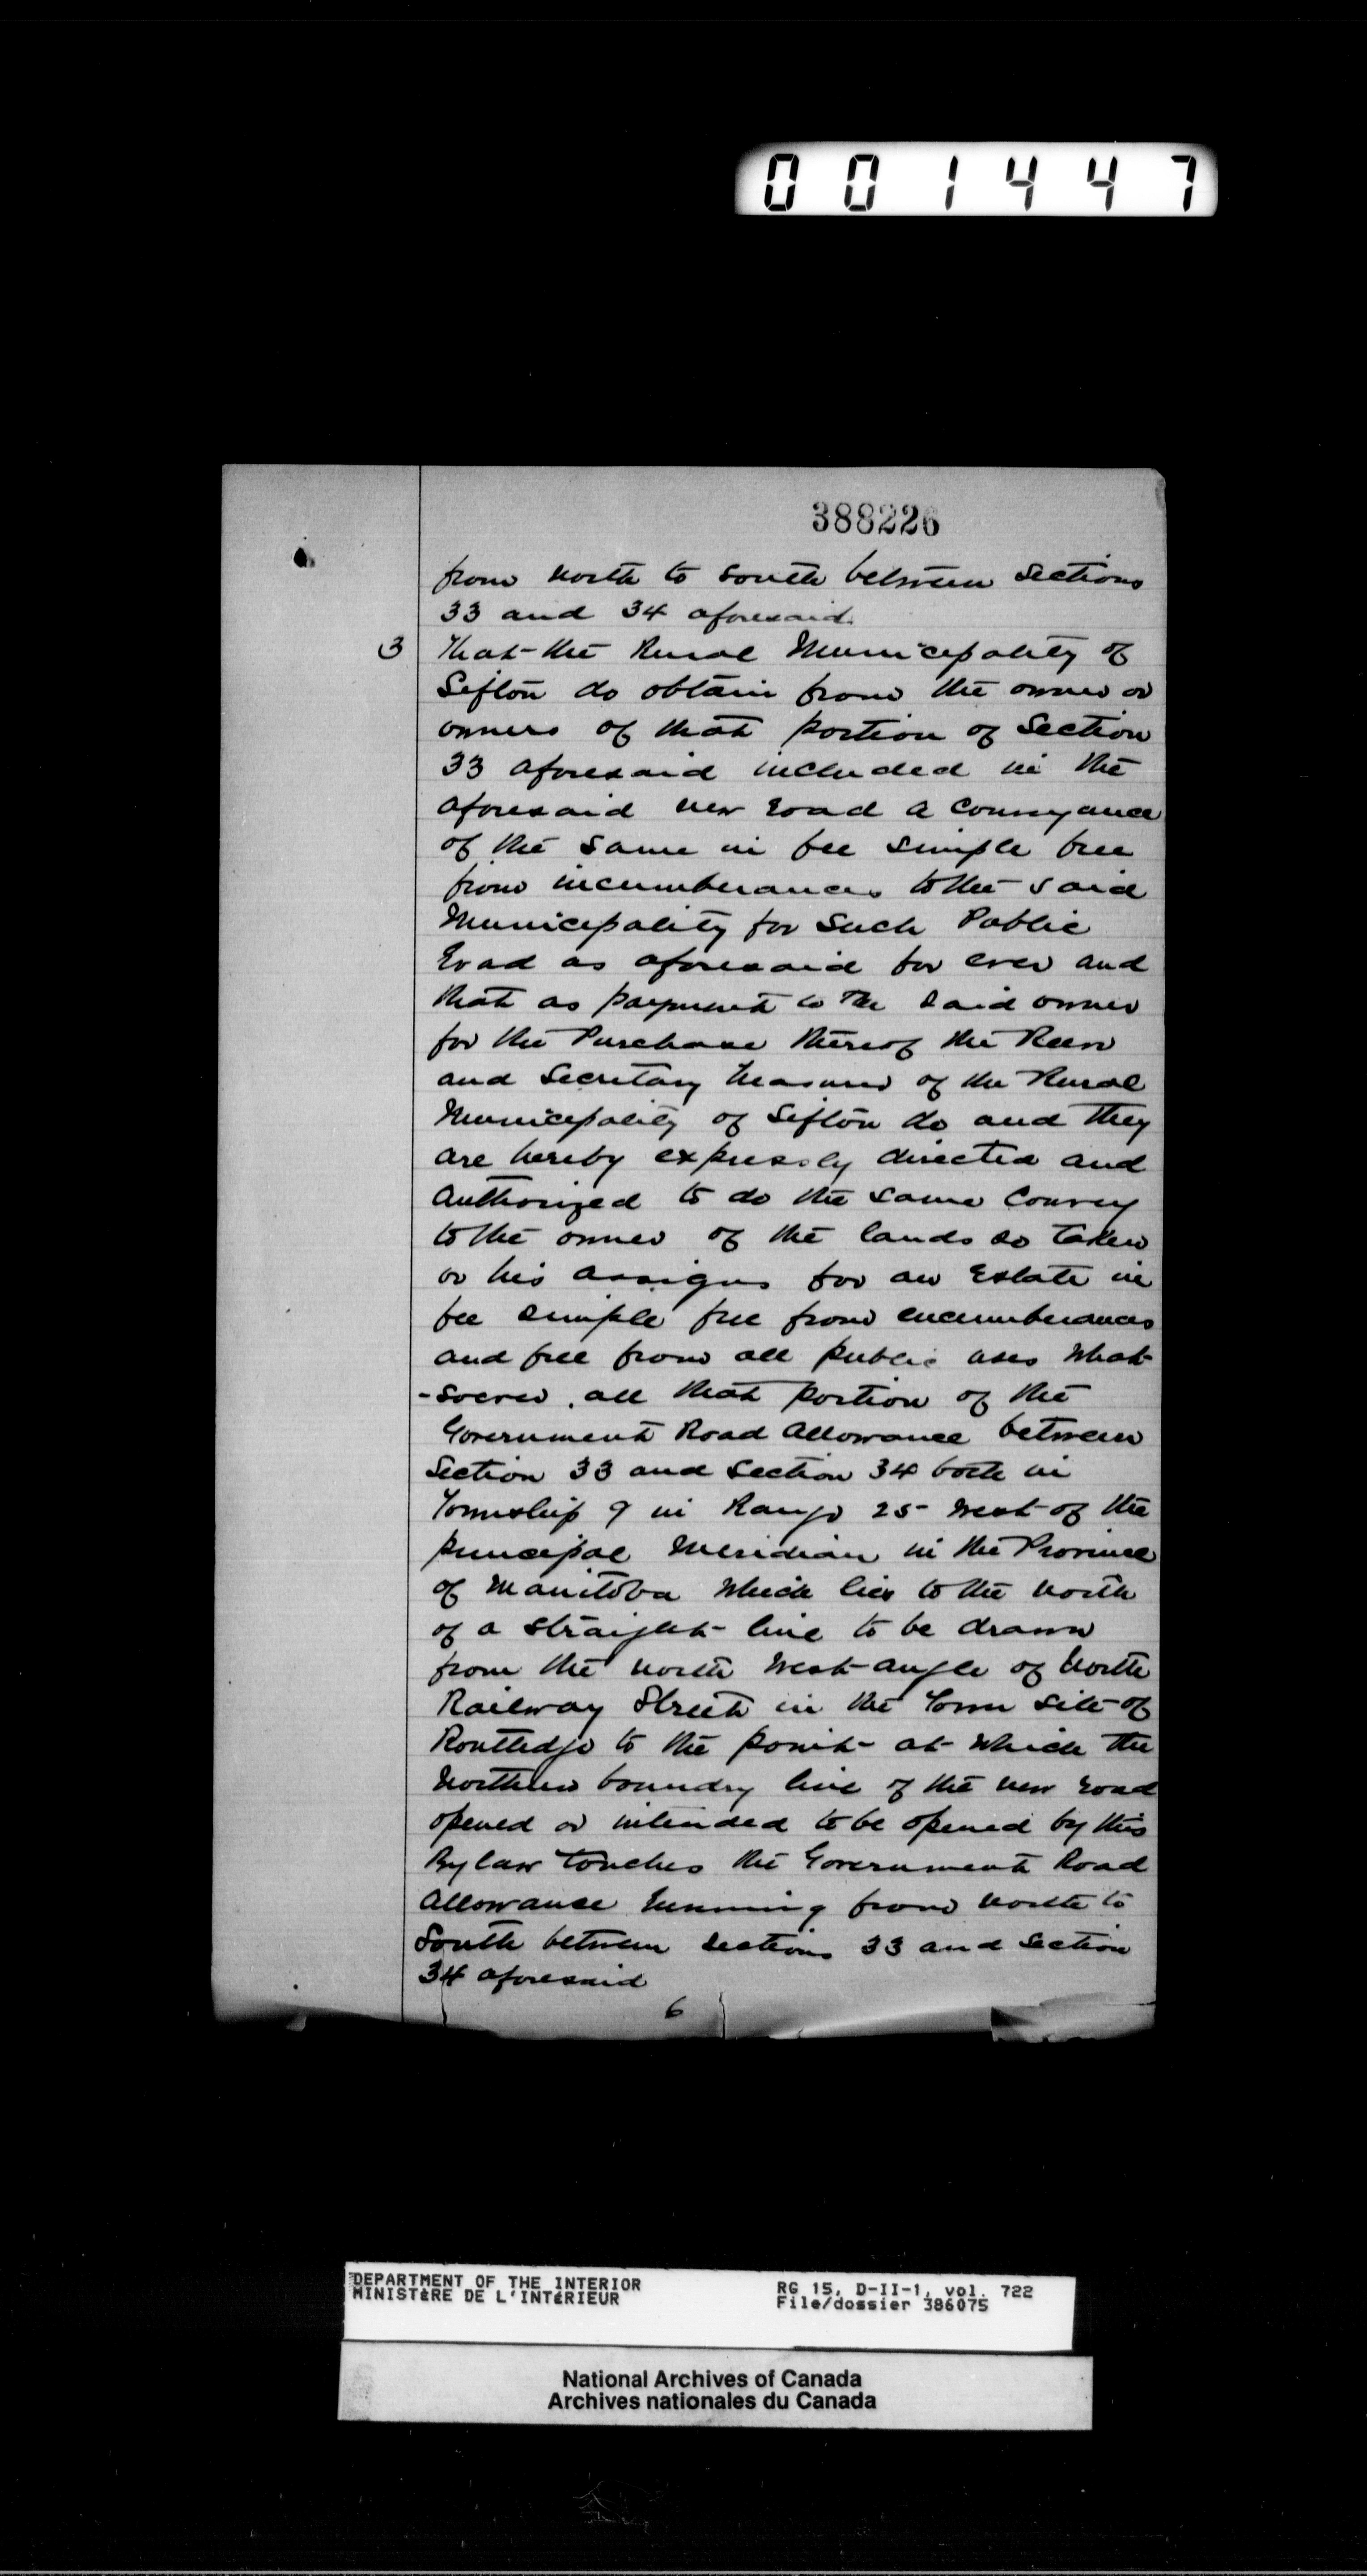 001447
388226
from north to south between Sections
33 and 34 aforesaid.
3 That the Rural Municipality of
Sifton do obtain from the owner or
owners of that portion of Section
33 aforesaid included in the
aforesaid new road a conveyance
of the same in fee simple free
from incumberances to the said
Municipality for such Public
Road as aforesaid for ever and
that as payment to the said owner
for the Purchase thereof the Reeve
and Secretary Treasurer of the Rural
Municipality of Sifton do and they
are hereby expressly directed and
authorized to do the same Convey
to the owner of the lands so taken
or his assigns for an Estate in
fee simple free from encumberances
and free from all public uses what-
-soever. all that portion of the
Government Road Allowance between
Section 33 and Section 34 both in
Township 9 in Range 25 West of the
principal Meridian in the Province
of Manitoba which lies to the north
of a straight line to be drawn
from the north West angle of North
Railway Street in the Town site of
Routledge to the point at which the
Northern boundry line of the new road
opened or intended to be opened by this
By law touches the Government Road
Allowance running from North to
South between Sections 33 and Section
34 aforesaid
6
DEPARTMENT OF THE INTERIOR RG 15, D-II-1, vol. 722
MINISTÈRE DE L'INTÉRIEUR File/dossier 386075
National Archives of Canada
Archives nationales du Canada